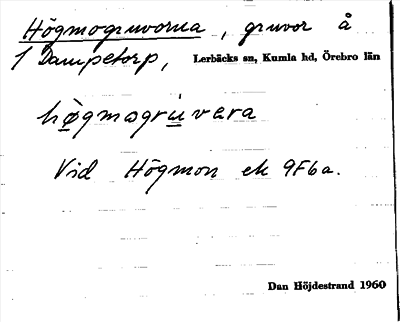 Högmogruvorna, gruvor å
1 Dampetorp, Lerbäcks sn, Kumla hd, Örebro län
högmogruvera
Vid Högmon ek 9F6a.
Dan Höjdestrand 1960